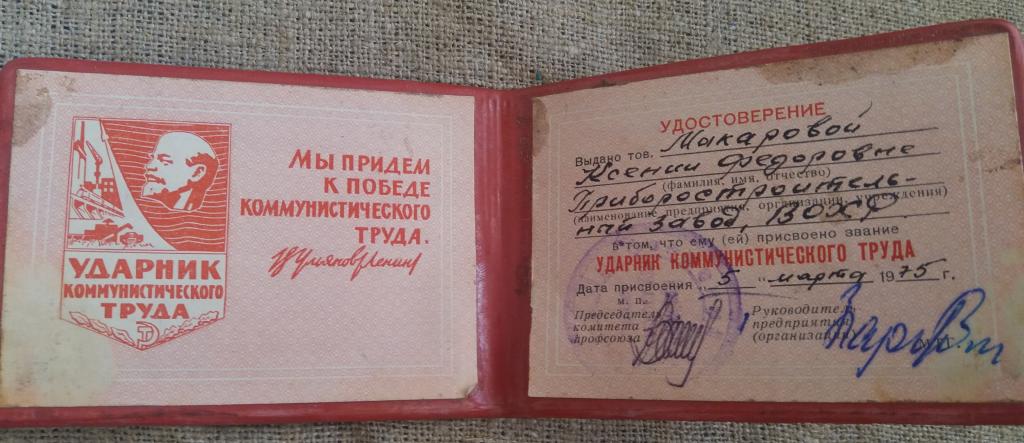 УДАРНИК
КОММУНИСТИЧЕСКОГО
ТРУДА
МЫ ПРИДЕМ
К ПОБЕДЕ
КОММУНИСТИЧЕСКОГО
ТРУДА.
В Ульянов (Ленин)
УДОСТОВЕРЕНИЕ
Выдано тов. Макаровой
Ксении Федоровне
(фамилия, имя, отчество)
Приборостроитель-
(наименование предприятия, организации, учреждения)
ный завод, ВОХР.
в том, что ему (ей) присвоено звание
УДАРНИК КОММУНИСТИЧЕСКОГО ТРУДА
Дата присвоения „5" марта 1975 г.
М. П.
Председатель
комитета
профсоюза
Руководитель
предприятия
(организации)